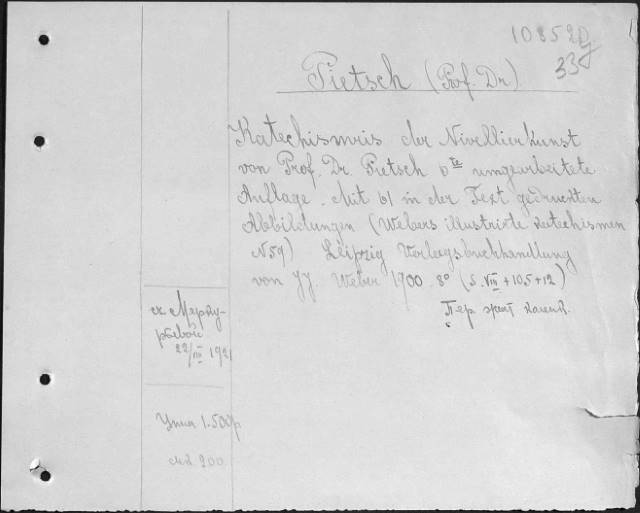 10852
33
Pietsch (Prof. Dr.)
Katechismus der Nivellierkunst
von Prof. Dr. Pietsch 6te umgearbeitete
Auflage. Mit 61 in der Text gedruckten
Abbildungen (Webers illustrirte Katechismen
N59) Leipzig Verlagsbuchhandlung
von JJ. Weber 1900. 8° (S. VIII+105+12)
Пер
22/III 1921